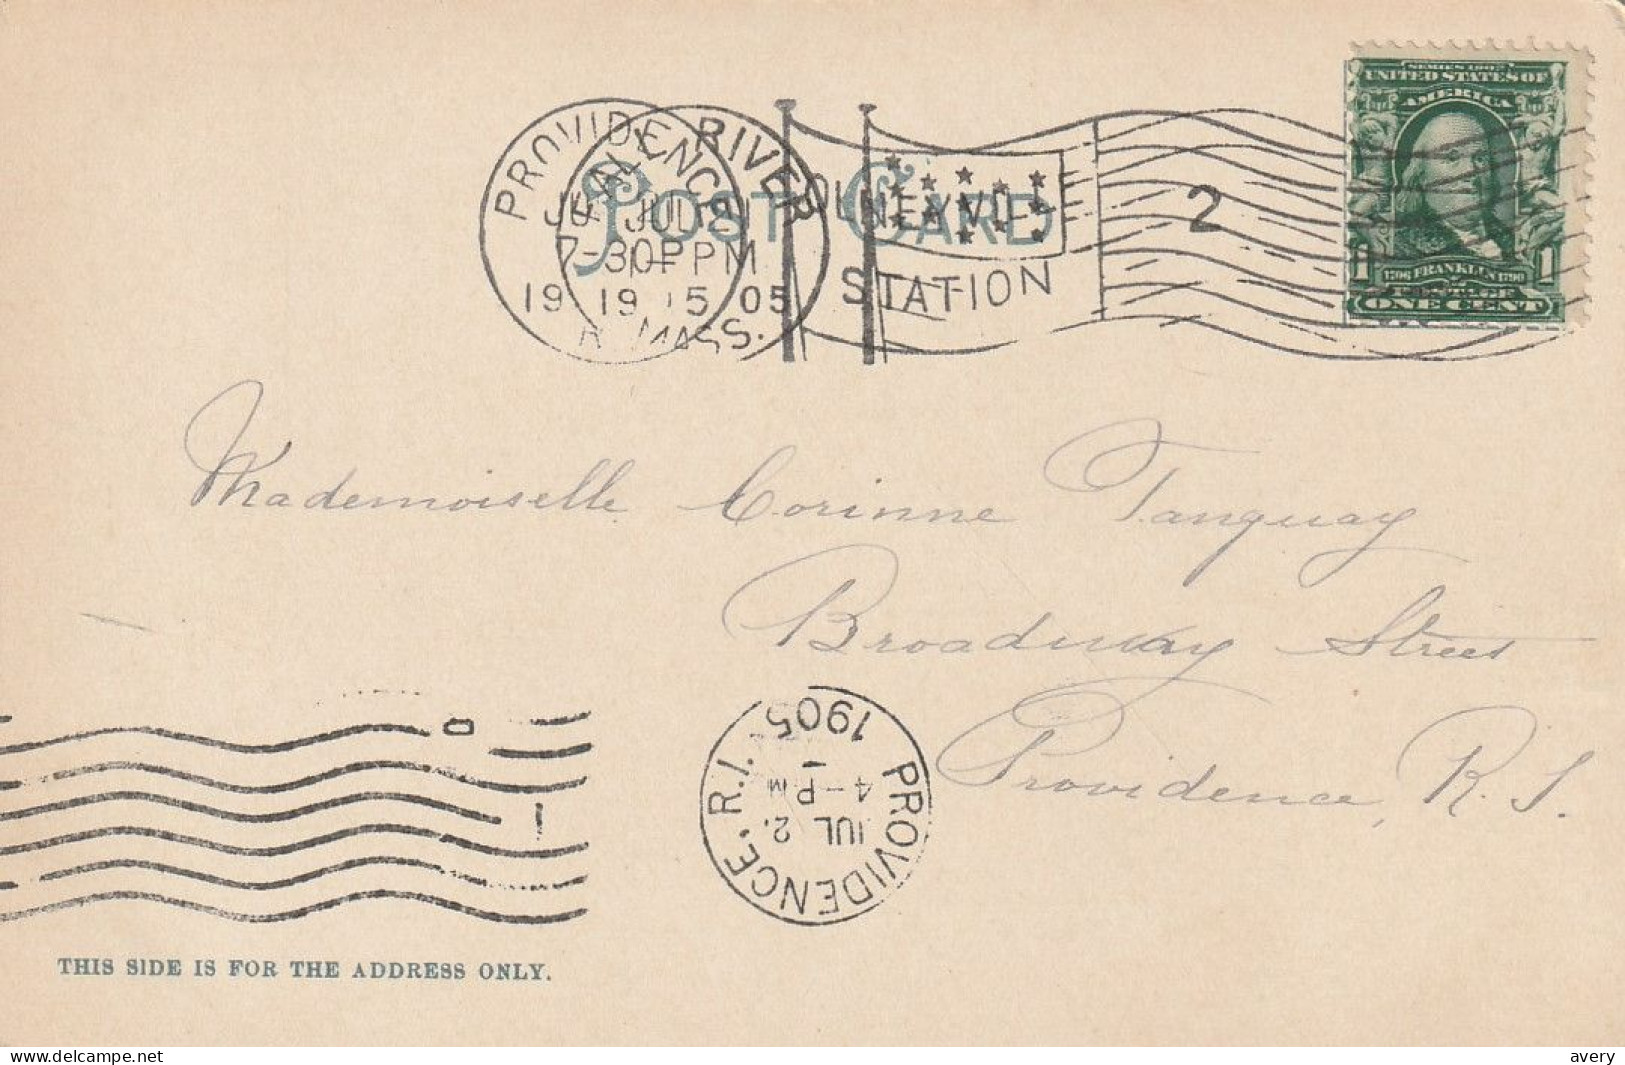 SERIES 1902
UNITED STATES OF
AMERICA
1706 FRANKLIN 1790
1 1
ONE CENT
POST CARD
FALL RIVER
MASS.
JUL 1
PM
1905
PROVIDENCE
7-30P
1905
OLNEYVILLE
STATION
2
Mademoiselle Corinne Tanguay
Broadway Street
Providence, R.I.
PROVIDENCE, R.I.
JUL 2
4-PM
1905
THIS SIDE IS FOR THE ADDRESS ONLY.
www.delcampe.net
avery